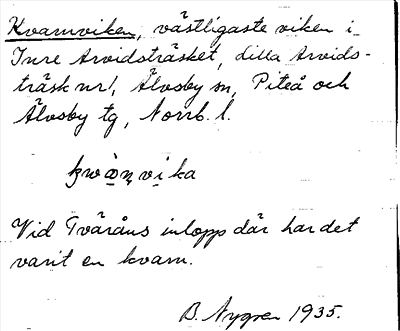 Kvarnviken, västligaste viken i
Inre Arvidsträsket, Lilla Arvids-
träsk nr 1, Älvsby sn, Piteå och
Älvsby tg, Norrb. l.
Vid Tväråns inlopp där har det
varit en kvarn.
B. Nygren 1935.